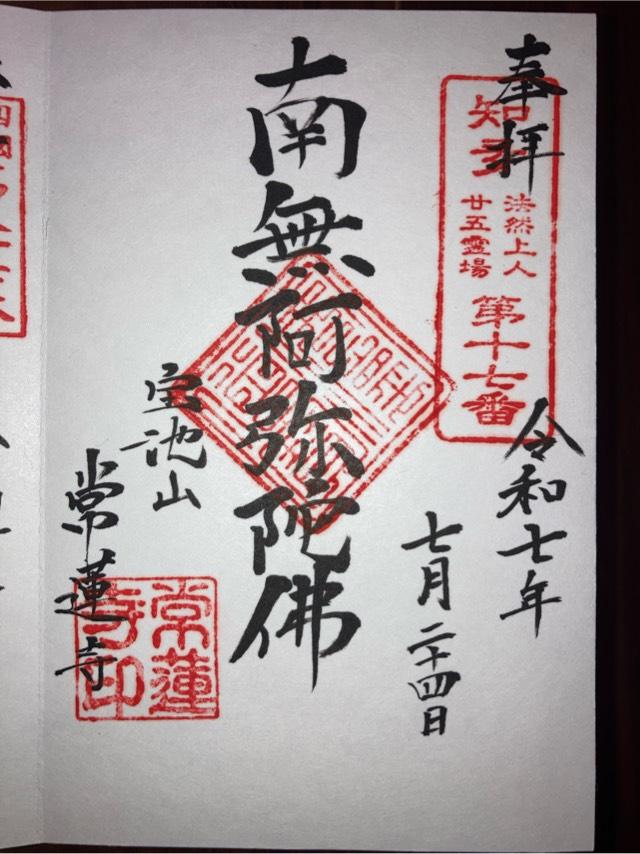 奉拝
知多
法然上人
廿五霊場
第十七番
令和七年
七月二十四日
南無阿弥陀佛
宝池山
常蓮寺
常蓮
寺印